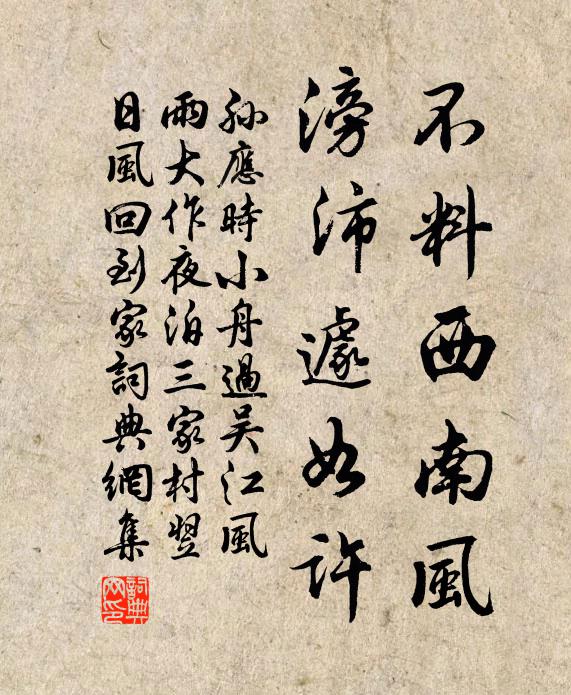 不料西南風
滂沛遽如許
孫應時小舟過吴江風
雨大作夜泊三家村翌
日風回到家詞典網集
詞典
网印